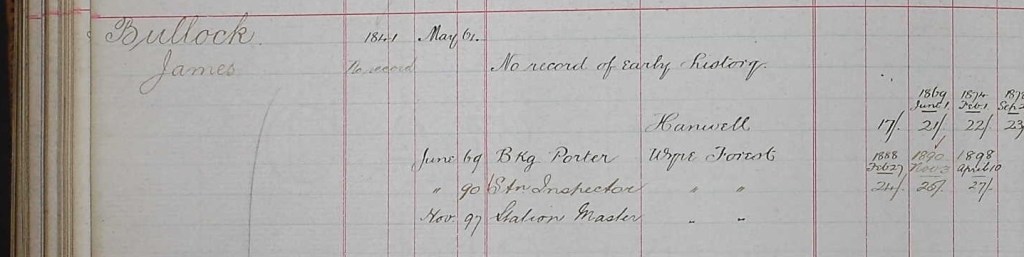 Bullock 1841 May 61.
James No record No record of early history.
1869 1874 1878
June 1 Feb. 1 Sep 2
Hanwell 17/. 21/. 22/. 23
June 69 Bkg Porter Wyre Forest 1888 1890 1898
Feb 27 Nov 3 April 10
" 90 Stn Inspector " " 24/. 26/. 27/.
Nov. 97 Station Master " "